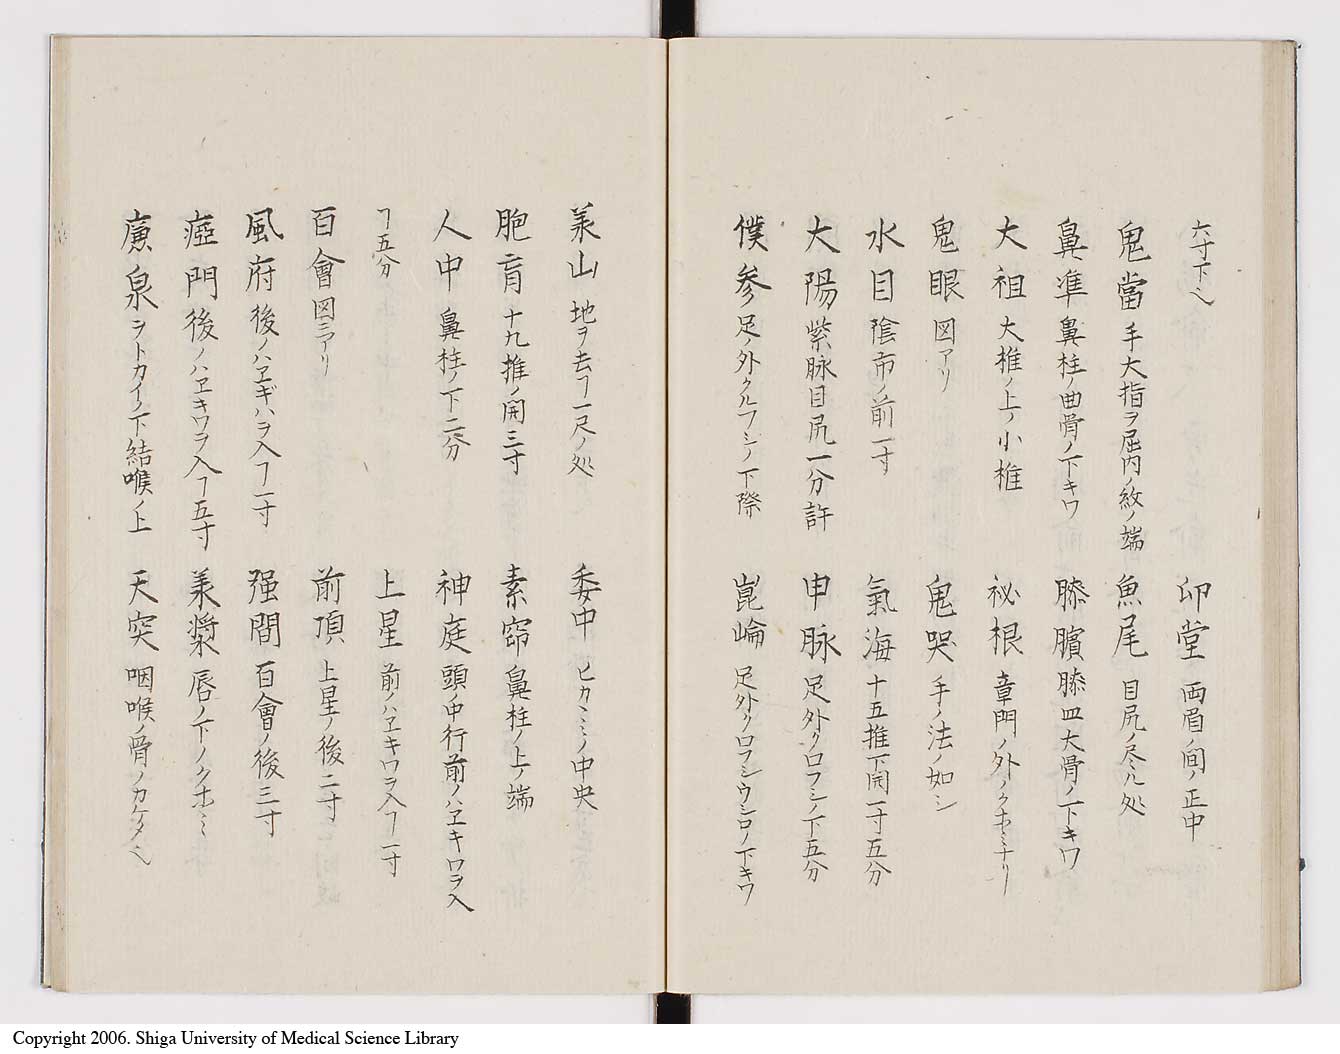 六寸下ヘ 印堂 両眉ノ間ノ正中
鬼當 手大指ヲ屈内ノ紋ノ端 魚尾 目尻ノ尽ル処
鼻準 鼻柱ノ曲骨ノ下キワ 膝臏 膝皿大骨ノ下キワ
大祖 大椎ノ上ノ小椎 祕根 章門ノ外ノクホミナリ
鬼眼 図アリ 鬼哭 手ノ法ノ如シ
水目 陰市ノ前一寸 氣海 十五推下開一寸五分
大陽 紫脉目尻一分許 申脉 足外クロフシノ下五分
僕参 足ノ外クルフシノ下際 崑崘 足外クロフシウシロノ下キワ
羕山 地ヲ去ヿ一尺ノ処 委中 ヒカヾミノ中央
胞肓 十九推ノ開三寸 素窌 鼻柱ノ上ノ端
人中 鼻柱ノ下二分 神庭 頭ノ中行前ノハヱキワヲ入
ヿ五分 上星 前ノハヱキワヲ入ヿ一寸
百會 図ニアリ 前頂 上星ノ後二寸
風府 後ノハヱギハヲ入ヿ一寸 强間 百會ノ後三寸
瘂門 後ノハヱキワヲ入ヿ五寸 羕漿 唇ノ下ノクホミ
廉泉 ヲトカイノ下結喉ノ上 天突 咽喉ノ骨ノカケメヘ
Copyright 2006. Shiga University of Medical Science Library